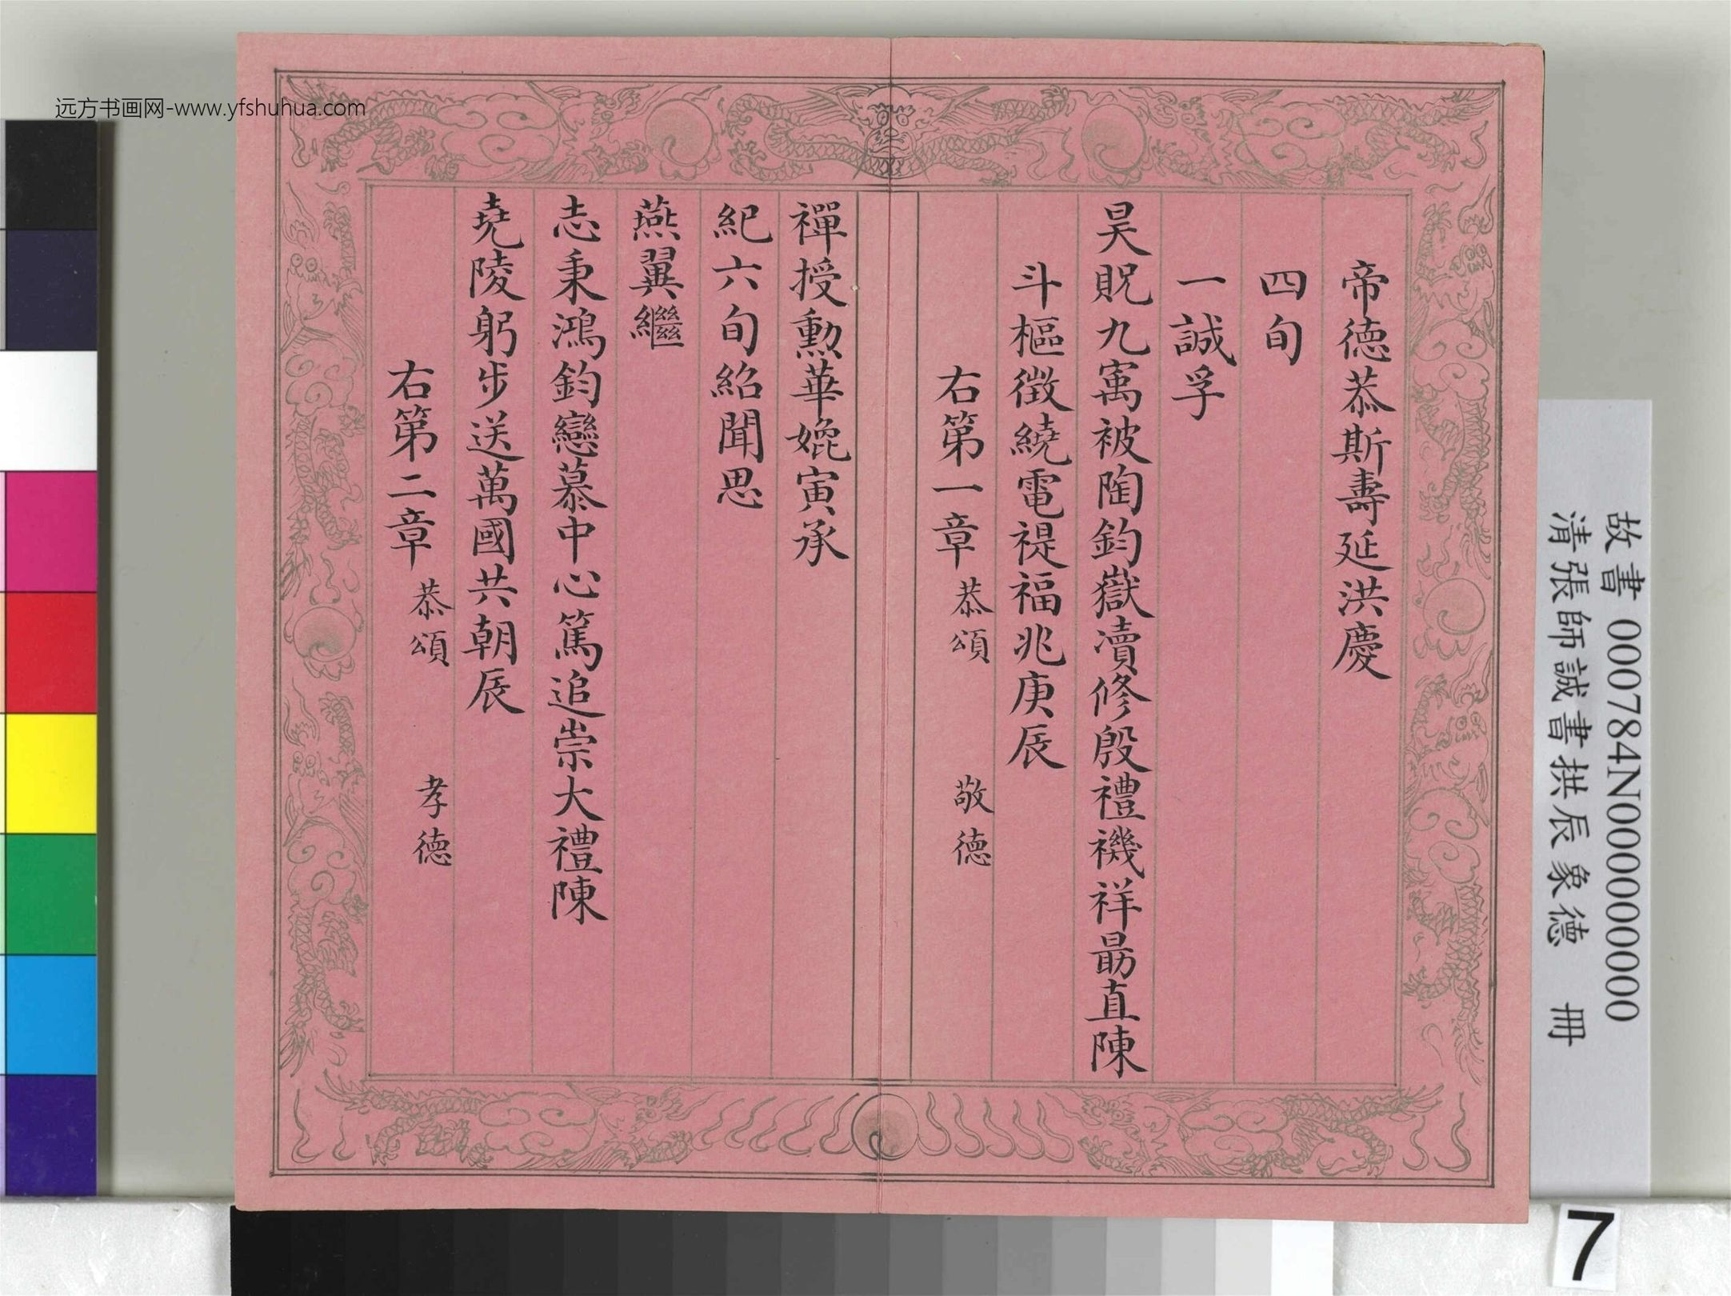 远方书画网-www.yfshuhua.com
帝德恭斯壽延洪慶
四旬
一誠孚
昊貺九寓被陶鈞嶽瀆修殷禮禨祥勗直陳
斗樞徴繞電禔福兆庚辰
右第一章 恭頌 敬德
禪授勳華媲寅承
紀六旬紹聞思
燕翼繼
志秉鴻鈞戀慕中心篤追崇大禮陳
堯陵躬步送萬國共朝辰
右第二章 恭頌 孝德
故書 000784N000000000
清張師誠書拱辰象德 冊
7